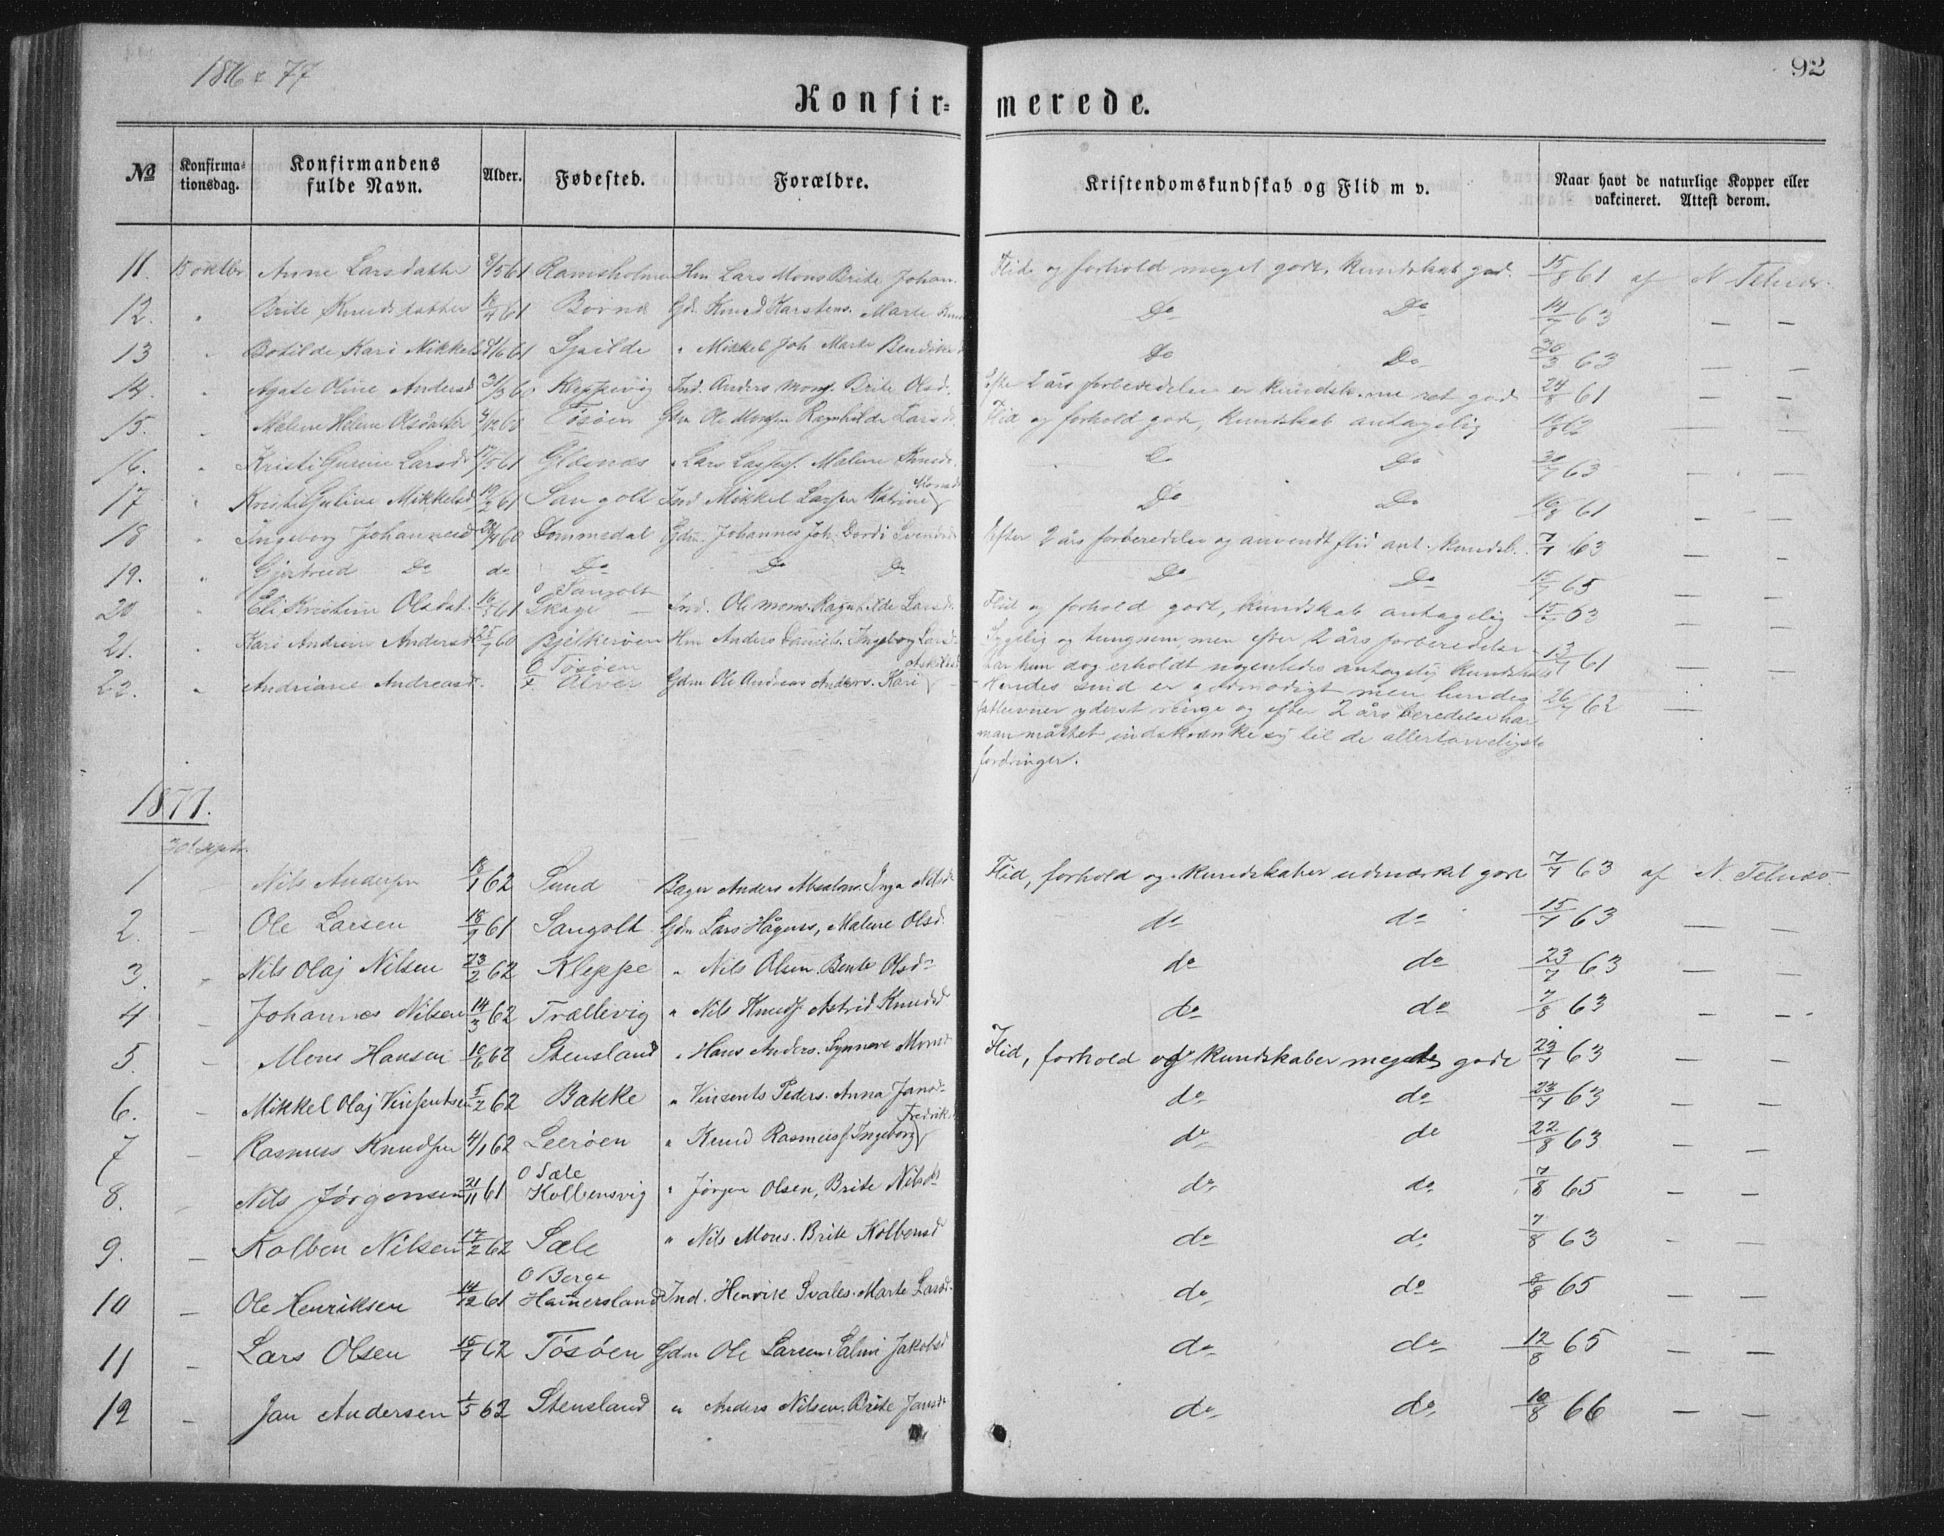 1876 & 77
92
Konfirmerede.
№ Konfirmationsdag. Konfirmandens fulde Navn. Alder. Fødested. Forældre. Kristendomskundskab og Flid m v. Naar havt de naturlige Kopper eller vakcineret. Attest derom.
11. 15 oktbr Anne Larsdatter 61 Ramsholmen Hm Lars Mons Brite Johan. Flid og forhold meget godt, kundskab god. 15/8 61 af N. Telnæs.
12. " Brite Knudsdatter 61 Bornæ Gdm. Knud Karstens. Marte Do Do 14/7 63 — —
13 " Botilde Kari Mikkelsd 61 " Mikkel Joh Marte Do Do 30/3 63 — —
14. " Agate Oline Andersd Kleppevig Ind. Anders Mons. Brite Olsd. Efter 2 års forberedelse er kundsk. nu ret god 24/8 61 — —
15. " Malene Helene Olsdatter 60 Tøsøen Gdm Ole Ragnhilde Larsd. Flid og forhold gode, kundskab antagelig 62 — —
16. " Kristi Gurine Larsd 61 " Lars Malene Knuds. Do Do 30/7 63 — —
17 " Kristi Guline Mikkelsd 61 Sangolt Ind Mikkel Larsen Katrine Monsd Do Do 61 — —
18 " Ingeborg Johannesd 60 Dommedal Gdm. Johannes Joh. Dordi Svendsd Efter 2 års forberedelse og anvendt flid ant. kundsk. 7/7 63 — —
19. " Gjertrud Do do Do Do Do Do Do 65 — —
20 " Eli Kristine Olsdat. 61 O Sangolt Skage — Ind. Ole Mons. Ragnhilde Larsd. Flid og forhold godt, kundskab antagelig 63 — —
21. " Kari Andrea Andersd 60 Bjelkerøen Hm Anders Daniels. Ingeborg Larsd Sygelig og tungnem, men efter 2 års forberedelse
har hun dog erholdt nogenledes antagelig kundskab. 13/7 61 — —
22. " Andriane Andreasd. O Tøsøen F. Alver Gdm Ole Andreas Anders. Kari Askilsd Hendes sind er godmodigt men hendes 26/7 62 —
fatteevner yderst ringe og efter 2 års beredelse har
man måttet indskrænke sig til de allertarveligste
fordringer.
1877.
30 septbr.
1 — Nils Andersen 18/1 62 Sund — Bager Anders Absalons. Inga Nilsd Flid, forhold og kundskaber udmærket gode 7/7 63 af N. Telnæs.
2. — Ole Larsen 61 Sangolt Gdm Lars Hågens, Malene Olsd. do do 15/7 63 — —
3. " Nils Olaj Nilsen 23/2 62 Kleppe " Nils Olsen. Bente Olsd do do 23/7 63 — —
4 — Johannes Nilsen 14/3 62 Trællevig " Nils Knuds Astrid Knudsd do do 7/8 63 — —
5. — Mons Hansen 10/6 62 Stensland " Hans Anders. Synneve Monsd Flid, forhold og kundskaber meget gode 23/7 63 — —
6. — Mikkel Olaj Vinsentsen 5/2 62 Bakke " Vinsents Peders. Anna Jansd do do 23/7 63 — —
7 — Rasmus Knudsen 4/1 62 Leerøen " Knud Rasmuss Ingeborg Fredriksd do do 22/8 63 —
8. — Nils Jørgensen 21/11 61 O Sæle Kolbensvig " Jørgen Olsen, Brite Nilsd do do 7/8 65 — —
9. — Kolben Nilsen 17/2 62 Sæle " Nils Mons. Brite Kolbensd do do 7/8 63 — —
10 — Ole Henriksen 14/12 61 O Berge Hamersland Ind. Henrik Svales. Marte Larsd. do do 8/8 65 — —
11 — Lars Olsen 62 Tøsøen Gdm Ole Larsen. Salmi Jakobsd do do 12/8 65 — —
12 — Jan Andersen 1/5 62 Stensland " Anders Nilsen. Brite Jansd do do 10/8 66 — —